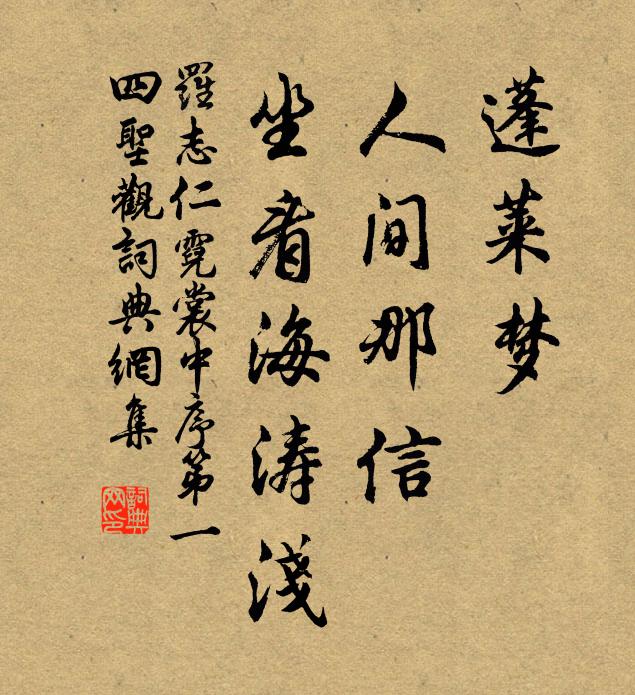 蓬莱梦
人间那信
坐看海涛淺
羅志仁霓裳中序第一
四聖觀詞典網集
詞典
网印